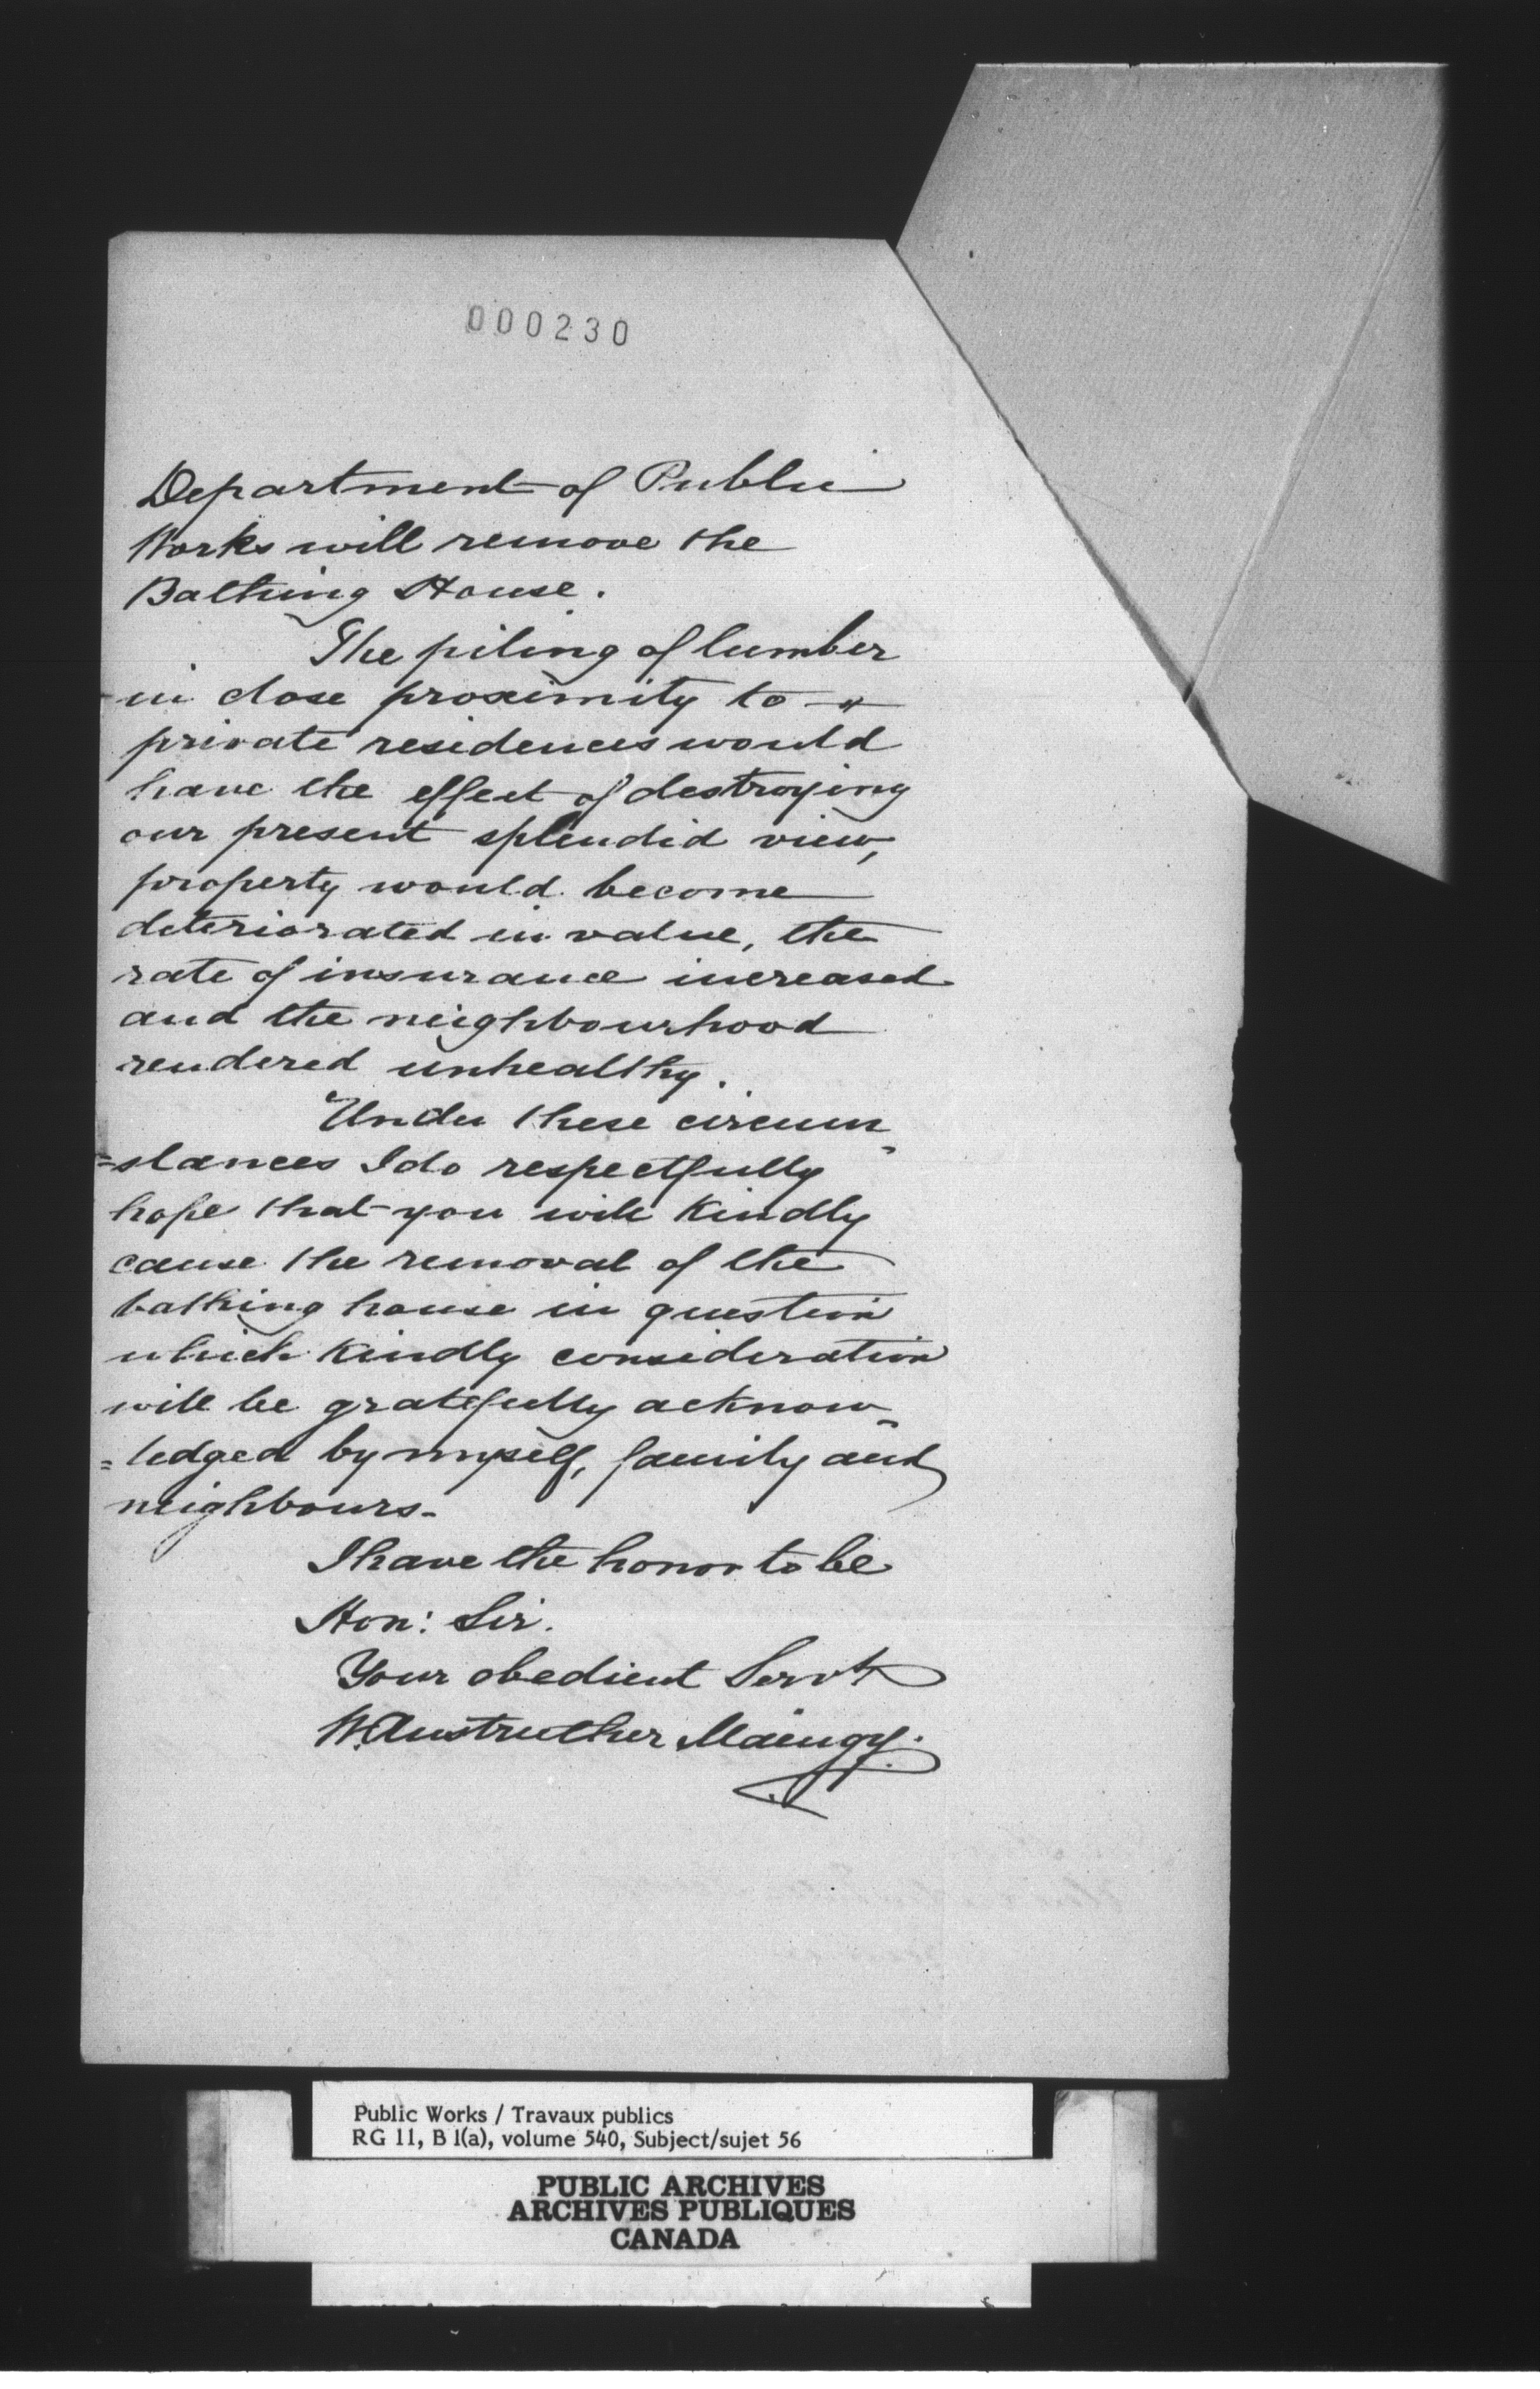 000230
Department of Public
Works will remove the
Bathing House.
The piling of lumber
in close proximity to
private residences would
have the effect of destroying
our present splendid view,
property would become
deteriorated in value, the
rate of insurance increased
and the neighbourhood
rendered unhealthy.
Under these circum-
=stances I do respectfully
hope that you will Kindly
cause the removal of the
bathing house in question
which Kindly consideration
will be gratefully acknow-
=ledged by myself, family and
neighbours-
I have the honor to be
Hon: Sir.
Your obedient Servt
W. Anstruther Maingy.
Public Works / Travaux publics
RG 11, B 1(a), volume 540, Subject/sujet 56
PUBLIC ARCHIVES
ARCHIVES PUBLIQUES
CANADA